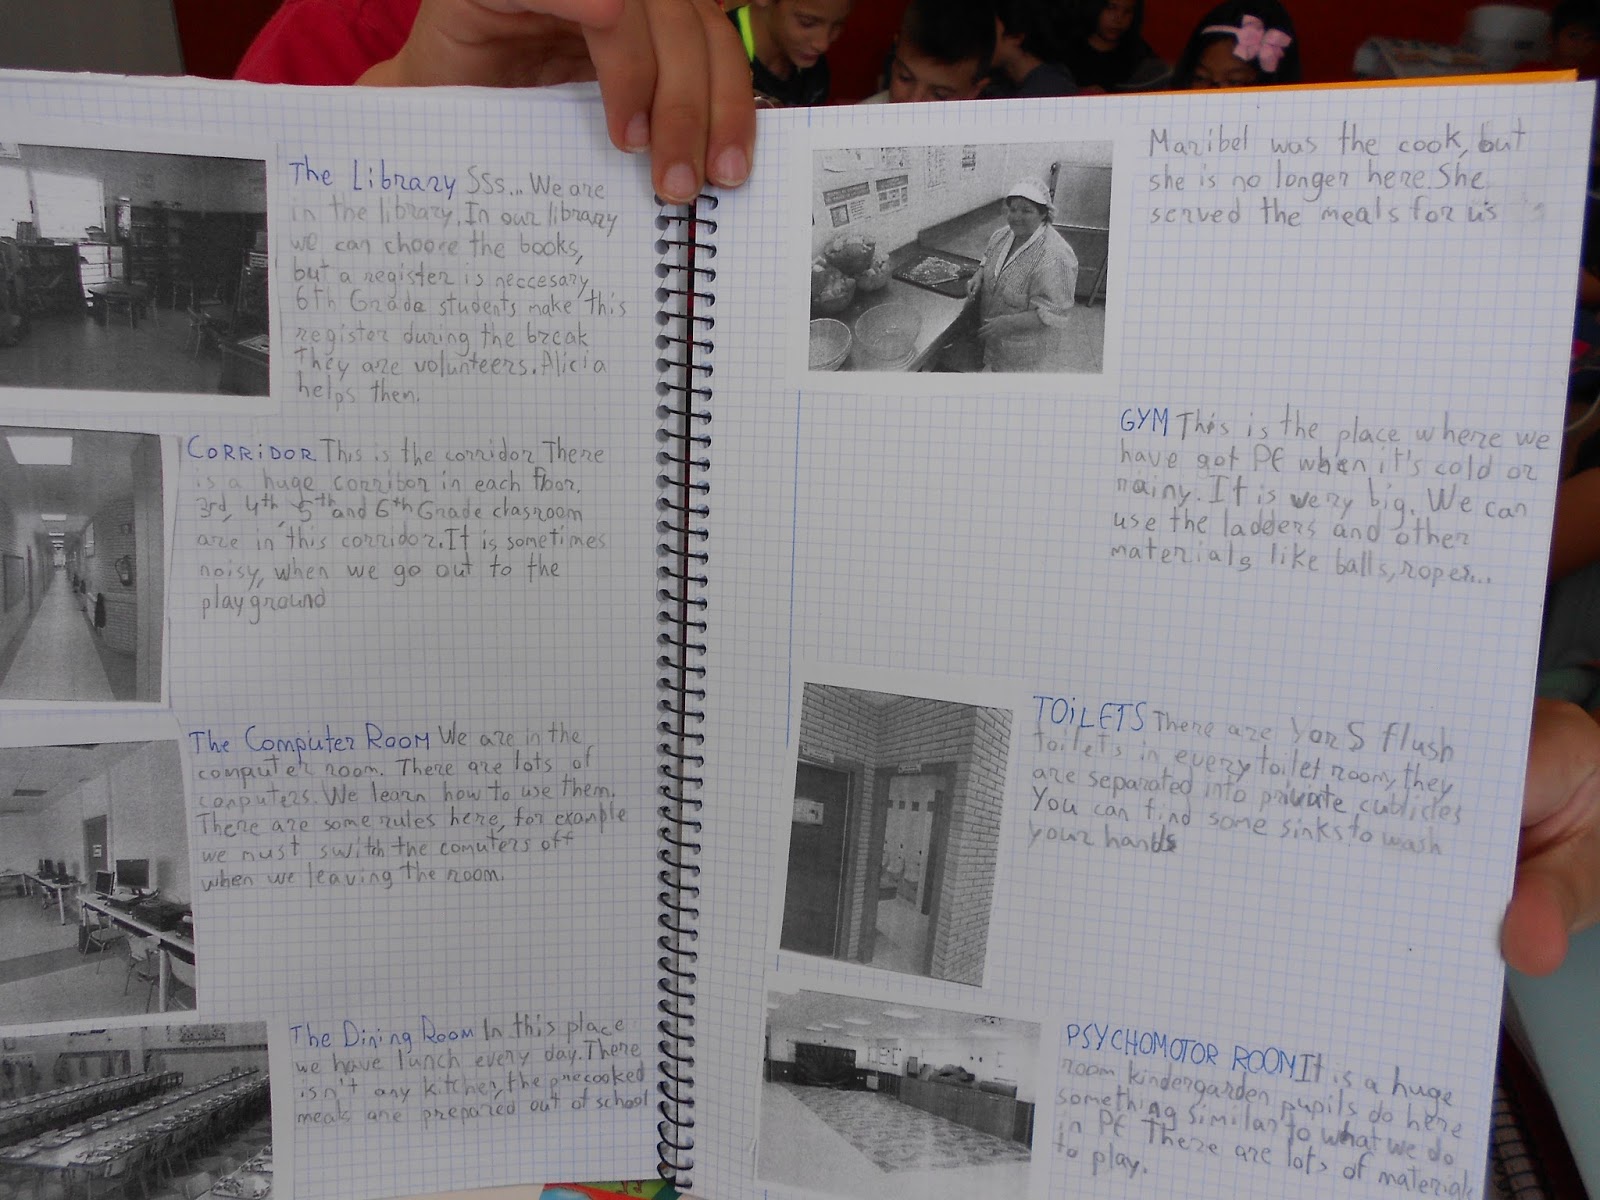 The Library Sss... We are
in the library. In our library
we can choose the books,
but a register is neccesary
6th Grade students make this
register during the break
They are volunteers. Alicia
helps them.
CORRiDOR This is the corridor There
is a huge corribor in each floor.
3rd, 4th, 5th and 6th Grade chasroom
are in this corridor. It is sometimes
noisy, when we go out to the
playground
The Computer Room We are in the
computer room. There are lots of
computers. We learn how to use them.
There are some rules here, for example
we must swith the comuters off
when we leaving the room.
The Dining Room In this place
we have lunch every day. There
isn't any kitchen, the precooked
meals are prepared out of school
Maribel was the cook, but
she is no longer here. She
served the meals for us
GYM This is the place where we
have got PE when it's cold or
rainy. It is very big. We can
use the ladders and other
materials like balls, ropes...
TOiLETS There are 4 or 5 flush
toilets in every toilet room, they
are separated into private cubicles
You can find some sinks to wash
your hands
PSYCHOMOTOR ROOM It is a huge
room kindergarden pupils do here
something similar to what we do
in PE There are lots of materials
to play.